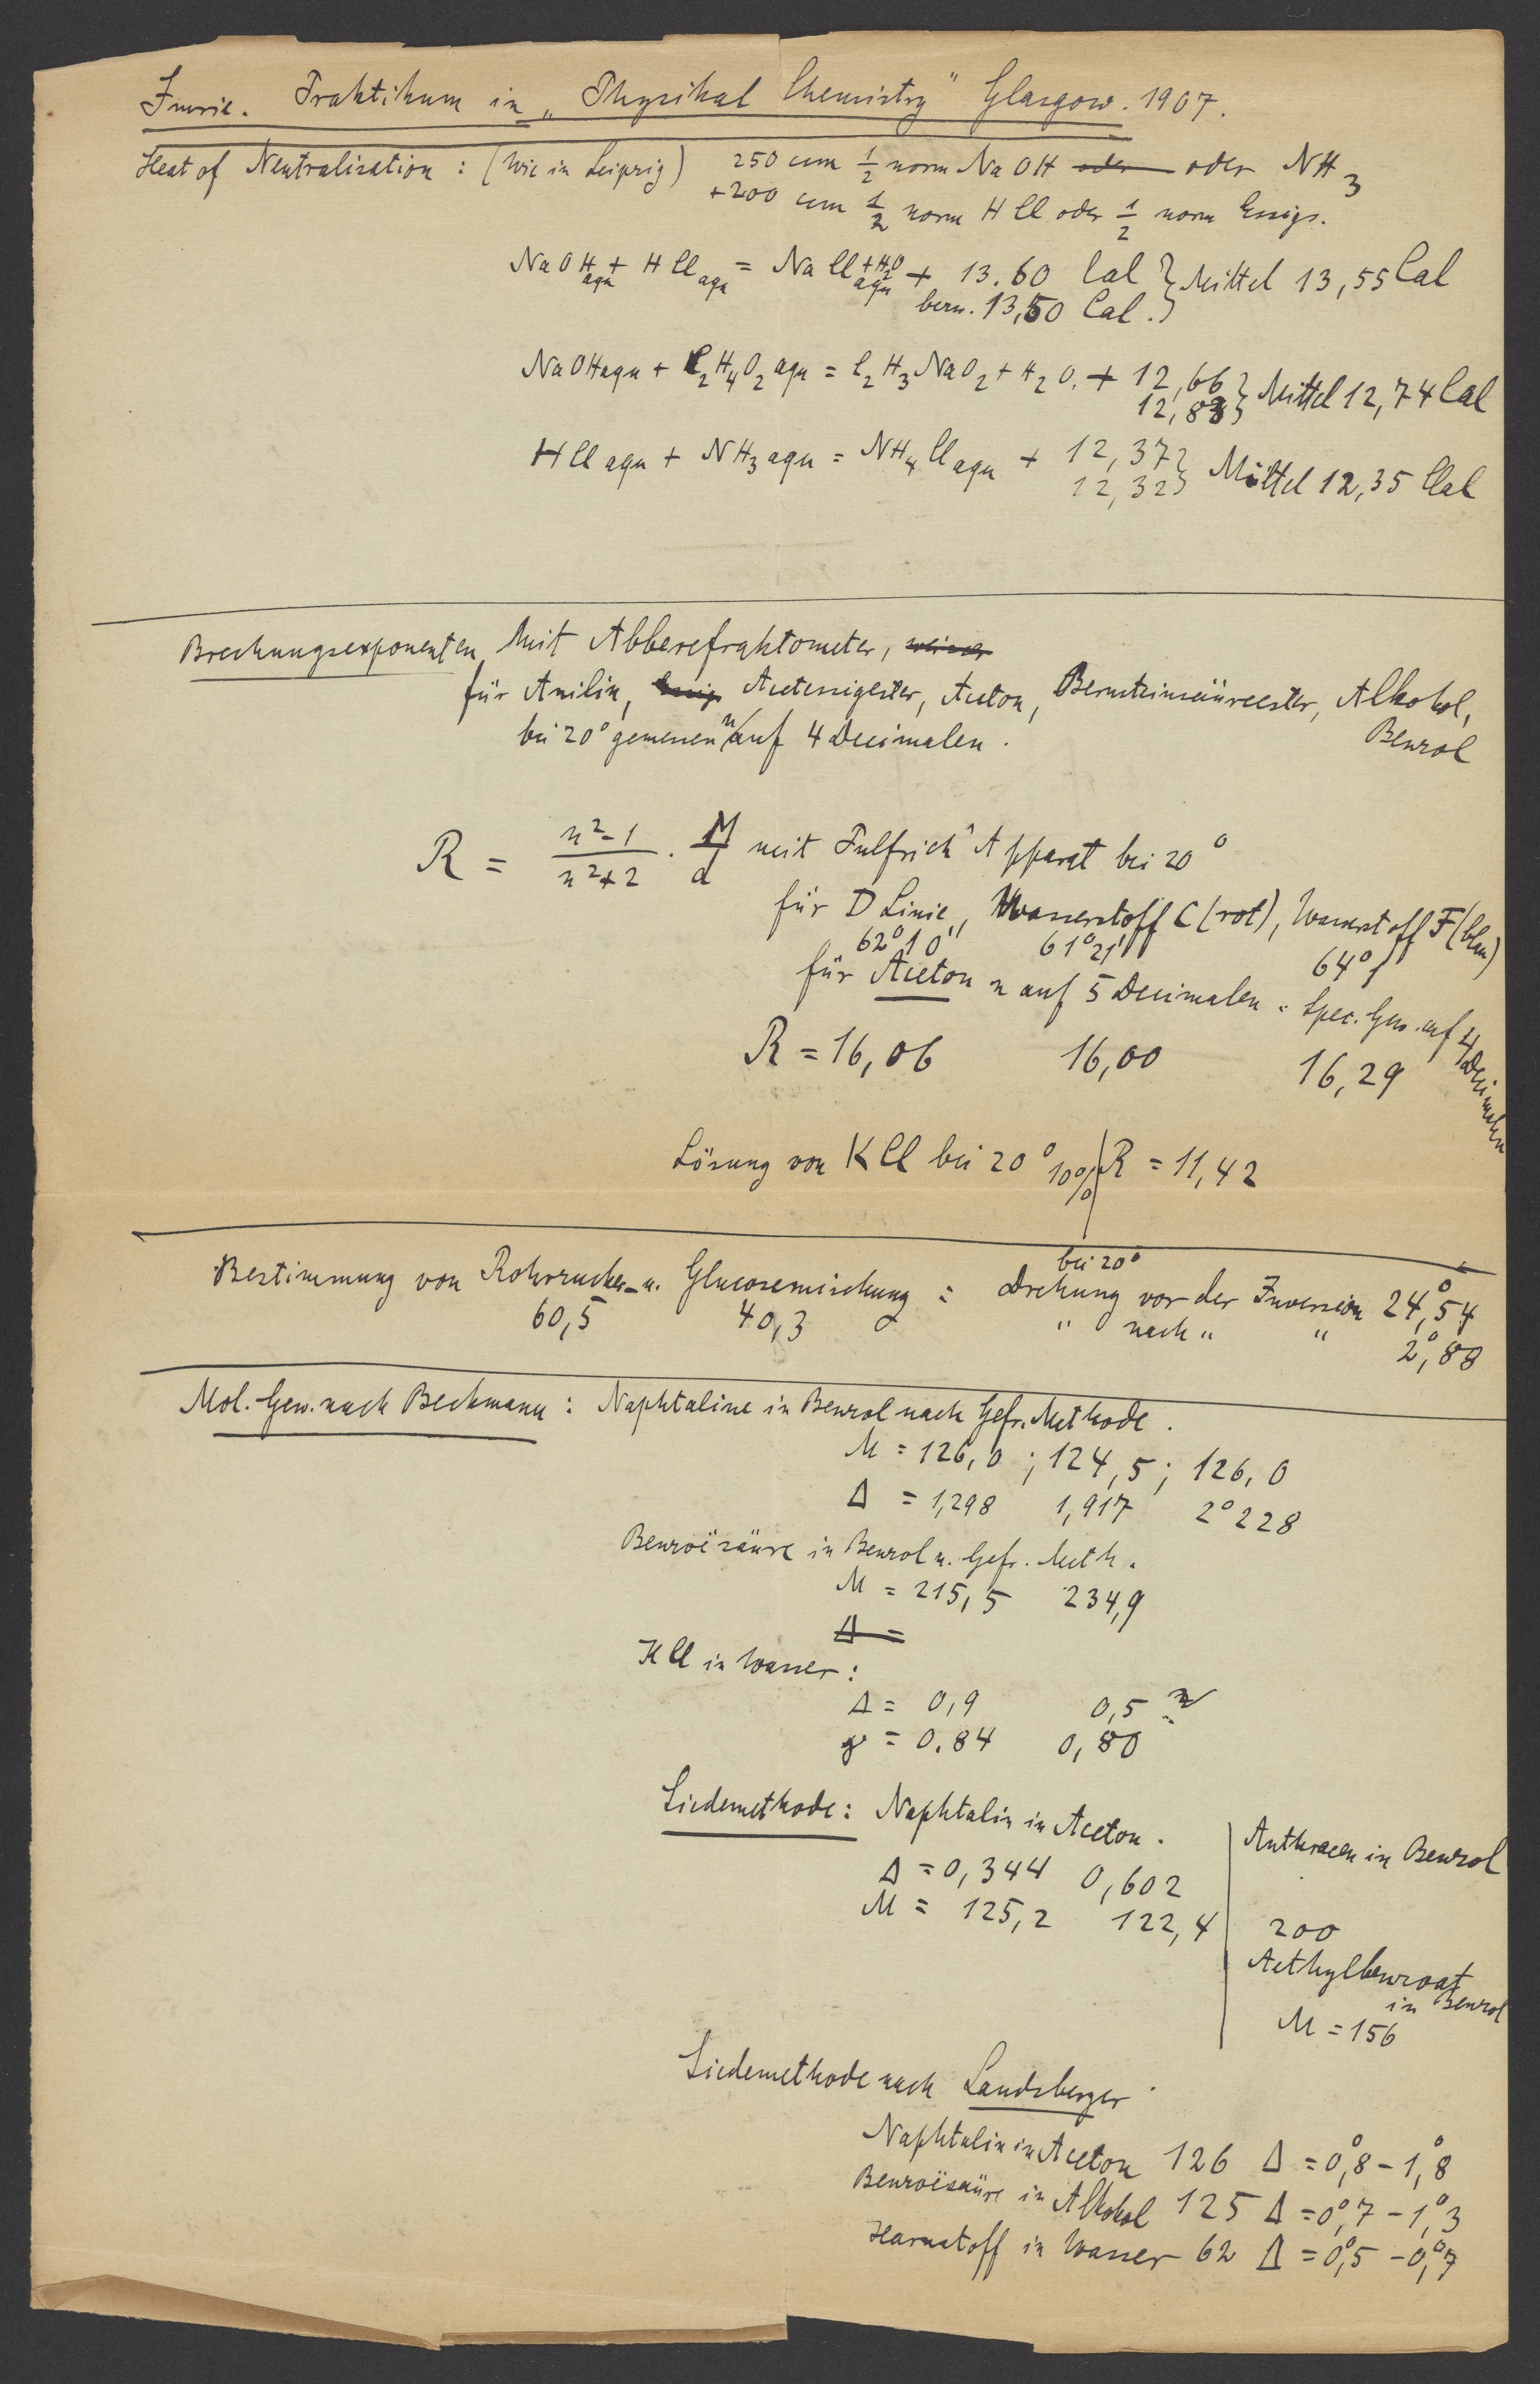 Imrie. Praktikum in „Physikal Chemistry" Glasgow. 1907.
Heat of Neutralisation : (Wie in Leipzig) 250 ccm 1/2 norm NaOH oder oder NH3
+200 ccm 1/2 norm HCl oder 1/2 norm Essigs.
NaOH aqu + HCl aqu = NaCl aqu + H2O + 13.60 Cal } Mittel 13,55 Cal
bern. 13,50 Cal. }
NaOH aqu + C2H4O2 aqu = C2H3NaO2 + H2O. + 12,66 } Mittel 12,74 Cal
12,83 }
HCl aqu + NH3 aqu = NH4Cl aqu + 12,37 } Mittel 12,35 Cal
12,32 }
Brechungsexponenten Mit Abberefraktometer,
für Anilin, Essig Acetessigester, Aceton, Bernsteinsäureester, Alkohol,
Benzol
bei 20° gemessen n auf 4 Decimalen.
R = n²-1/n²+2 . M/d mit Pulfrich Apparat bei 20°
für D Linie, Wasserstoff C (rot), Wasserstoff F (blau)
62°10' 61°21' 64°1'
für Aceton n auf 5 Decimalen. Spec. Gew. auf 4 Decimalen
R = 16,06 16,00 16,29
Lösung von KCl bei 20° 10% R = 11,42
Bestimmung von Rohrzucker- u. Glucosemischung : Drehung bei 20° vor der Inversion 24,°54
60,5 40,3 " nach " " 2,°88
Mol. Gew. nach Beckmann : Naphtaline in Benzol nach Gefr. Methode.
M = 126,0 ; 124,5 ; 126,0
Δ = 1,298 1,917 2°228
Benzoësäure in Benzol n. Gefr. Meth.
M = 215,5 234,9
Δ =
KCl in Wasser :
Δ = 0,9 0,5
= 0.84 0,80
Siedemethode : Naphtalin in Aceton.
Δ = 0,344 0,602
M = 125,2 122,4
Anthracen in Benzol
200
Aethylbenzoat
in Benzol
M = 156
Siedemethode nach Landsberger
Naphtalin in Aceton 126 Δ = 0,°8 - 1,°8
Benzoësäure in Alkohol 125 Δ = 0,°7 - 1,°3
Harnstoff in Wasser 62 Δ = 0,°5 - 0,°7